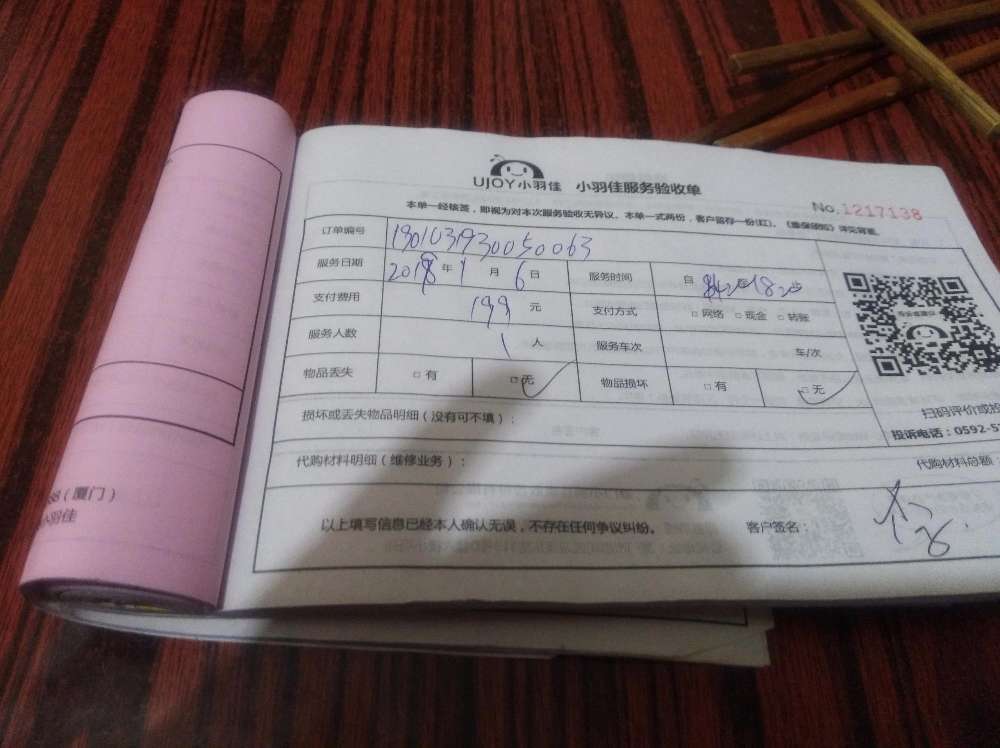 UJOY小羽佳 小羽佳服务验收单
No.1217138
本单一经核签，即视为对本次服务验收无异议。本单一式两份，客户留存一份(红)。《维保须知》详见背面。
订单编号 1901031930050063
服务日期 2019年1月6日 服务时间 自
支付费用 199元 支付方式 □网络 □现金 □转账
服务人数 1人 服务车次 车/次
物品丢失 □有 □无 物品损坏 □有 □无
扫码评价或投
投诉电话：0592-5
损坏或丢失物品明细（没有可不填）：
代购材料明细（维修业务）： 代购材料总额：
以上填写信息已经本人确认无误，不存在任何争议纠纷。 客户签名：
68（厦门）
小羽佳